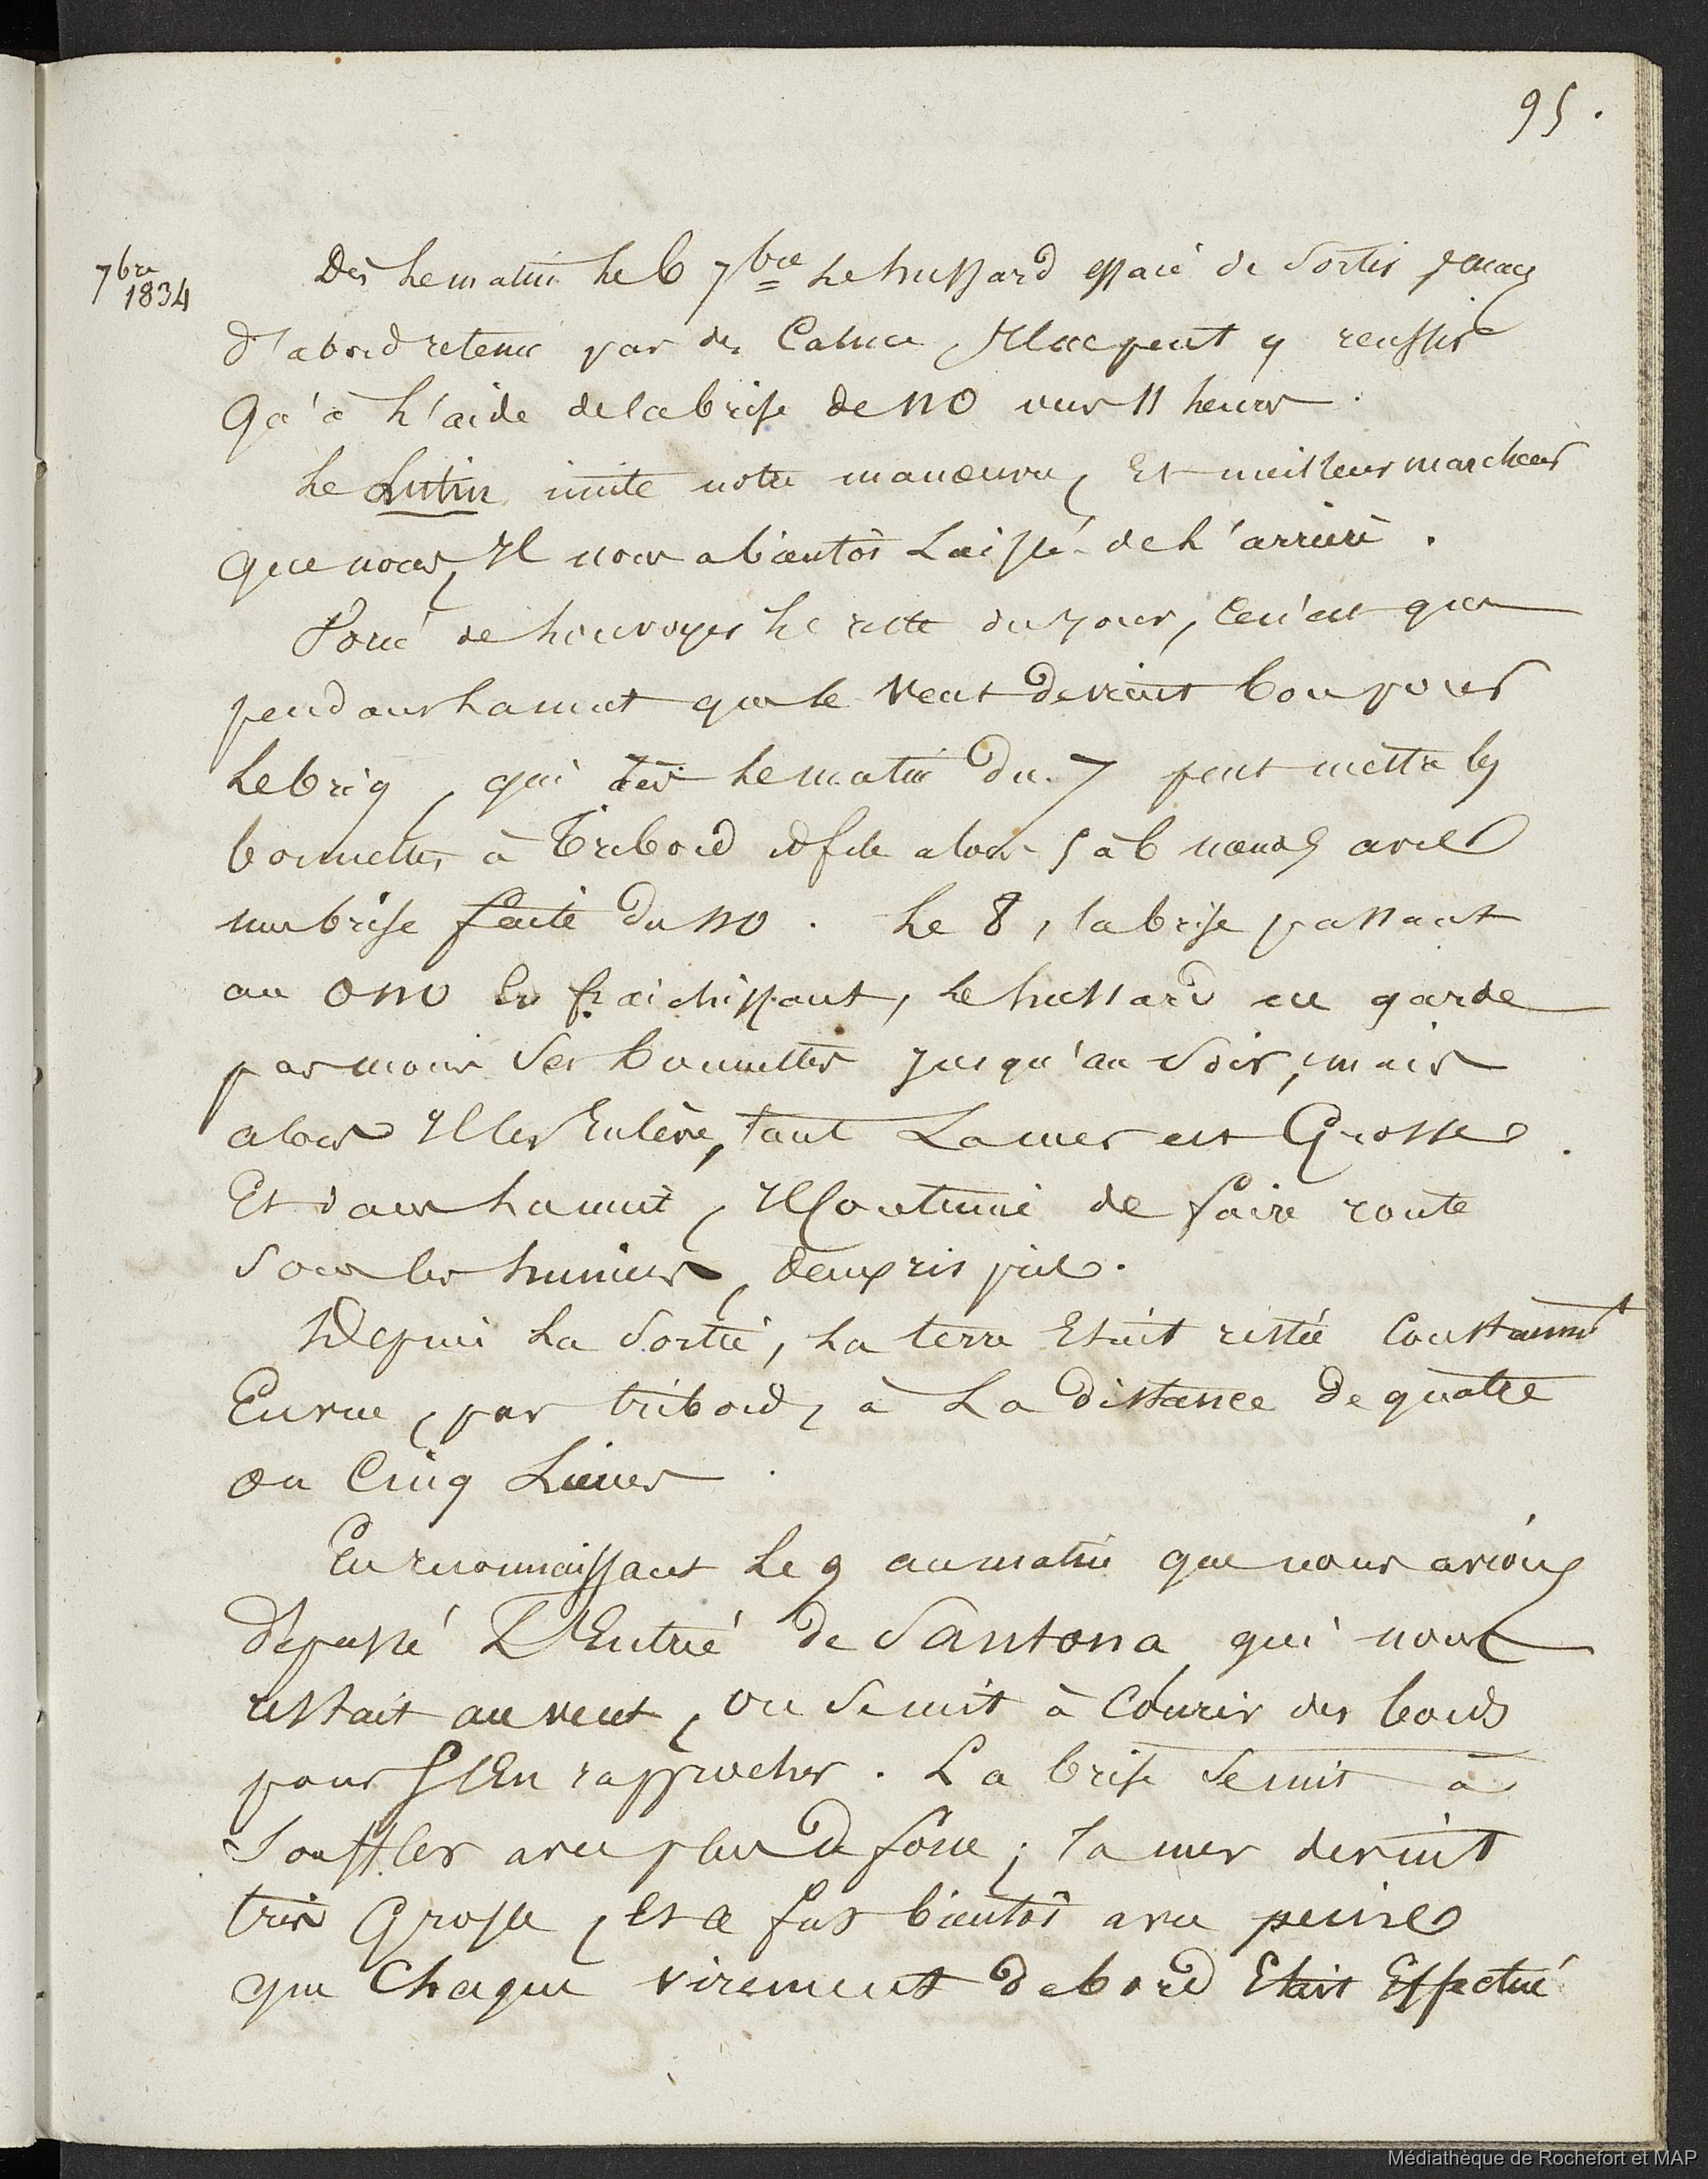 95.
7bre
1834
Dès le matin le 6 7bre le hussard essaie de sortir mais
d'abord retenu par des calmes, Il ne peut y reussir
Qu'à l'aide de la brise de NO vers 11 heures.
Le Lutin imite notre manœuvre, Et meilleur marcheur
que nous, Il nous a bientôt Laissé de l'arrière.
Forcé de louvoyer le reste du jour, Ce n'est que
pendant la nuit que le vent devient bon pour
Le brig, qui dès le matin du 7 peut mettre les
bonnettes à Tribord et file alors 5 à 6 nœuds avec
une brise faite du NO. Le 8, la brise passant
au ONO En fraichissant, le hussard en garde
pas moins ses bonnettes jusqu'au soir, mais
alors Il les Enlève, tant La mer est Grosse.
Et dans la nuit, Il continue de faire route
sous les huniers, deux ris pris.
Depuis La sortie, La terre Etait restée Constamt
En vue, par tribord, à La distance de quatre
ou Cinq Lieues.
En reconnaissant Le 9 au matin que nous avions
dépassé L'Entrée de Santona qui nous
restait au vent, on se mit à Courir des bords
pour s'En rapprocher. La brise se mit à
souffler avec plus de force; la mer devint
très Grosse, Et ce fut bientôt avec peine
que Chaque virement de bord Etait Effectué
Médiathèque de Rochefort et MAP